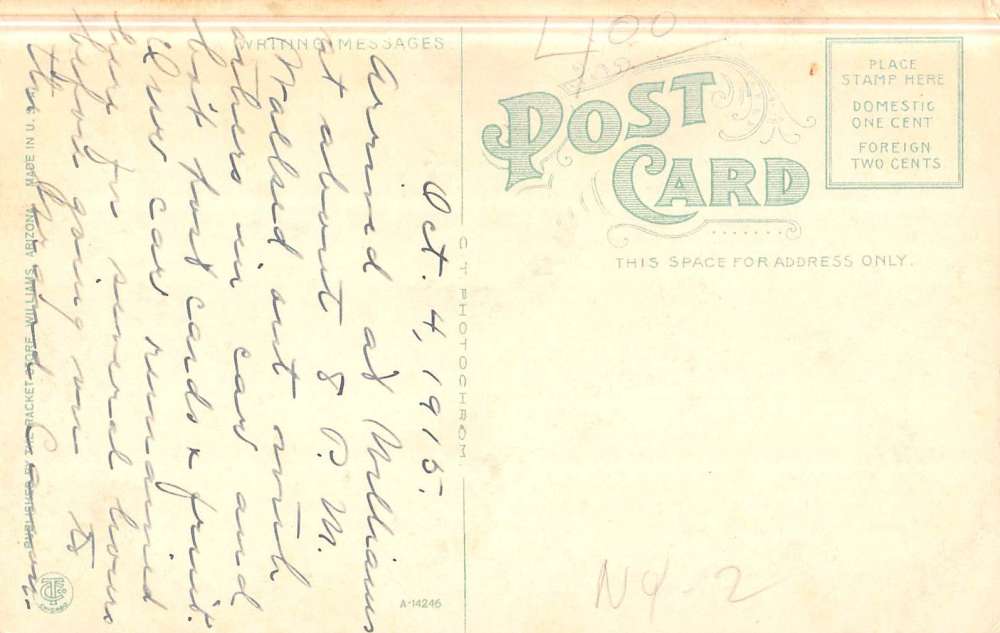 WRITING MESSAGES
Oct. 4, 1915.
Arrived at Williams
at about 8 P. M.
Walked out with
others in car and
bot post cards & fruit.
Our car remained
here for several hours
before going on to
the Grand Canyon.
PUBLISHED BY THE RACKET STORE, WILLIAMS, ARIZONA. MADE IN U. S. A.
C T PHOTOCHROM
A-14246
CHICAGO
400
POST
CARD
THIS SPACE FOR ADDRESS ONLY.
PLACE
STAMP HERE
DOMESTIC
ONE CENT
FOREIGN
TWO CENTS
NY-2